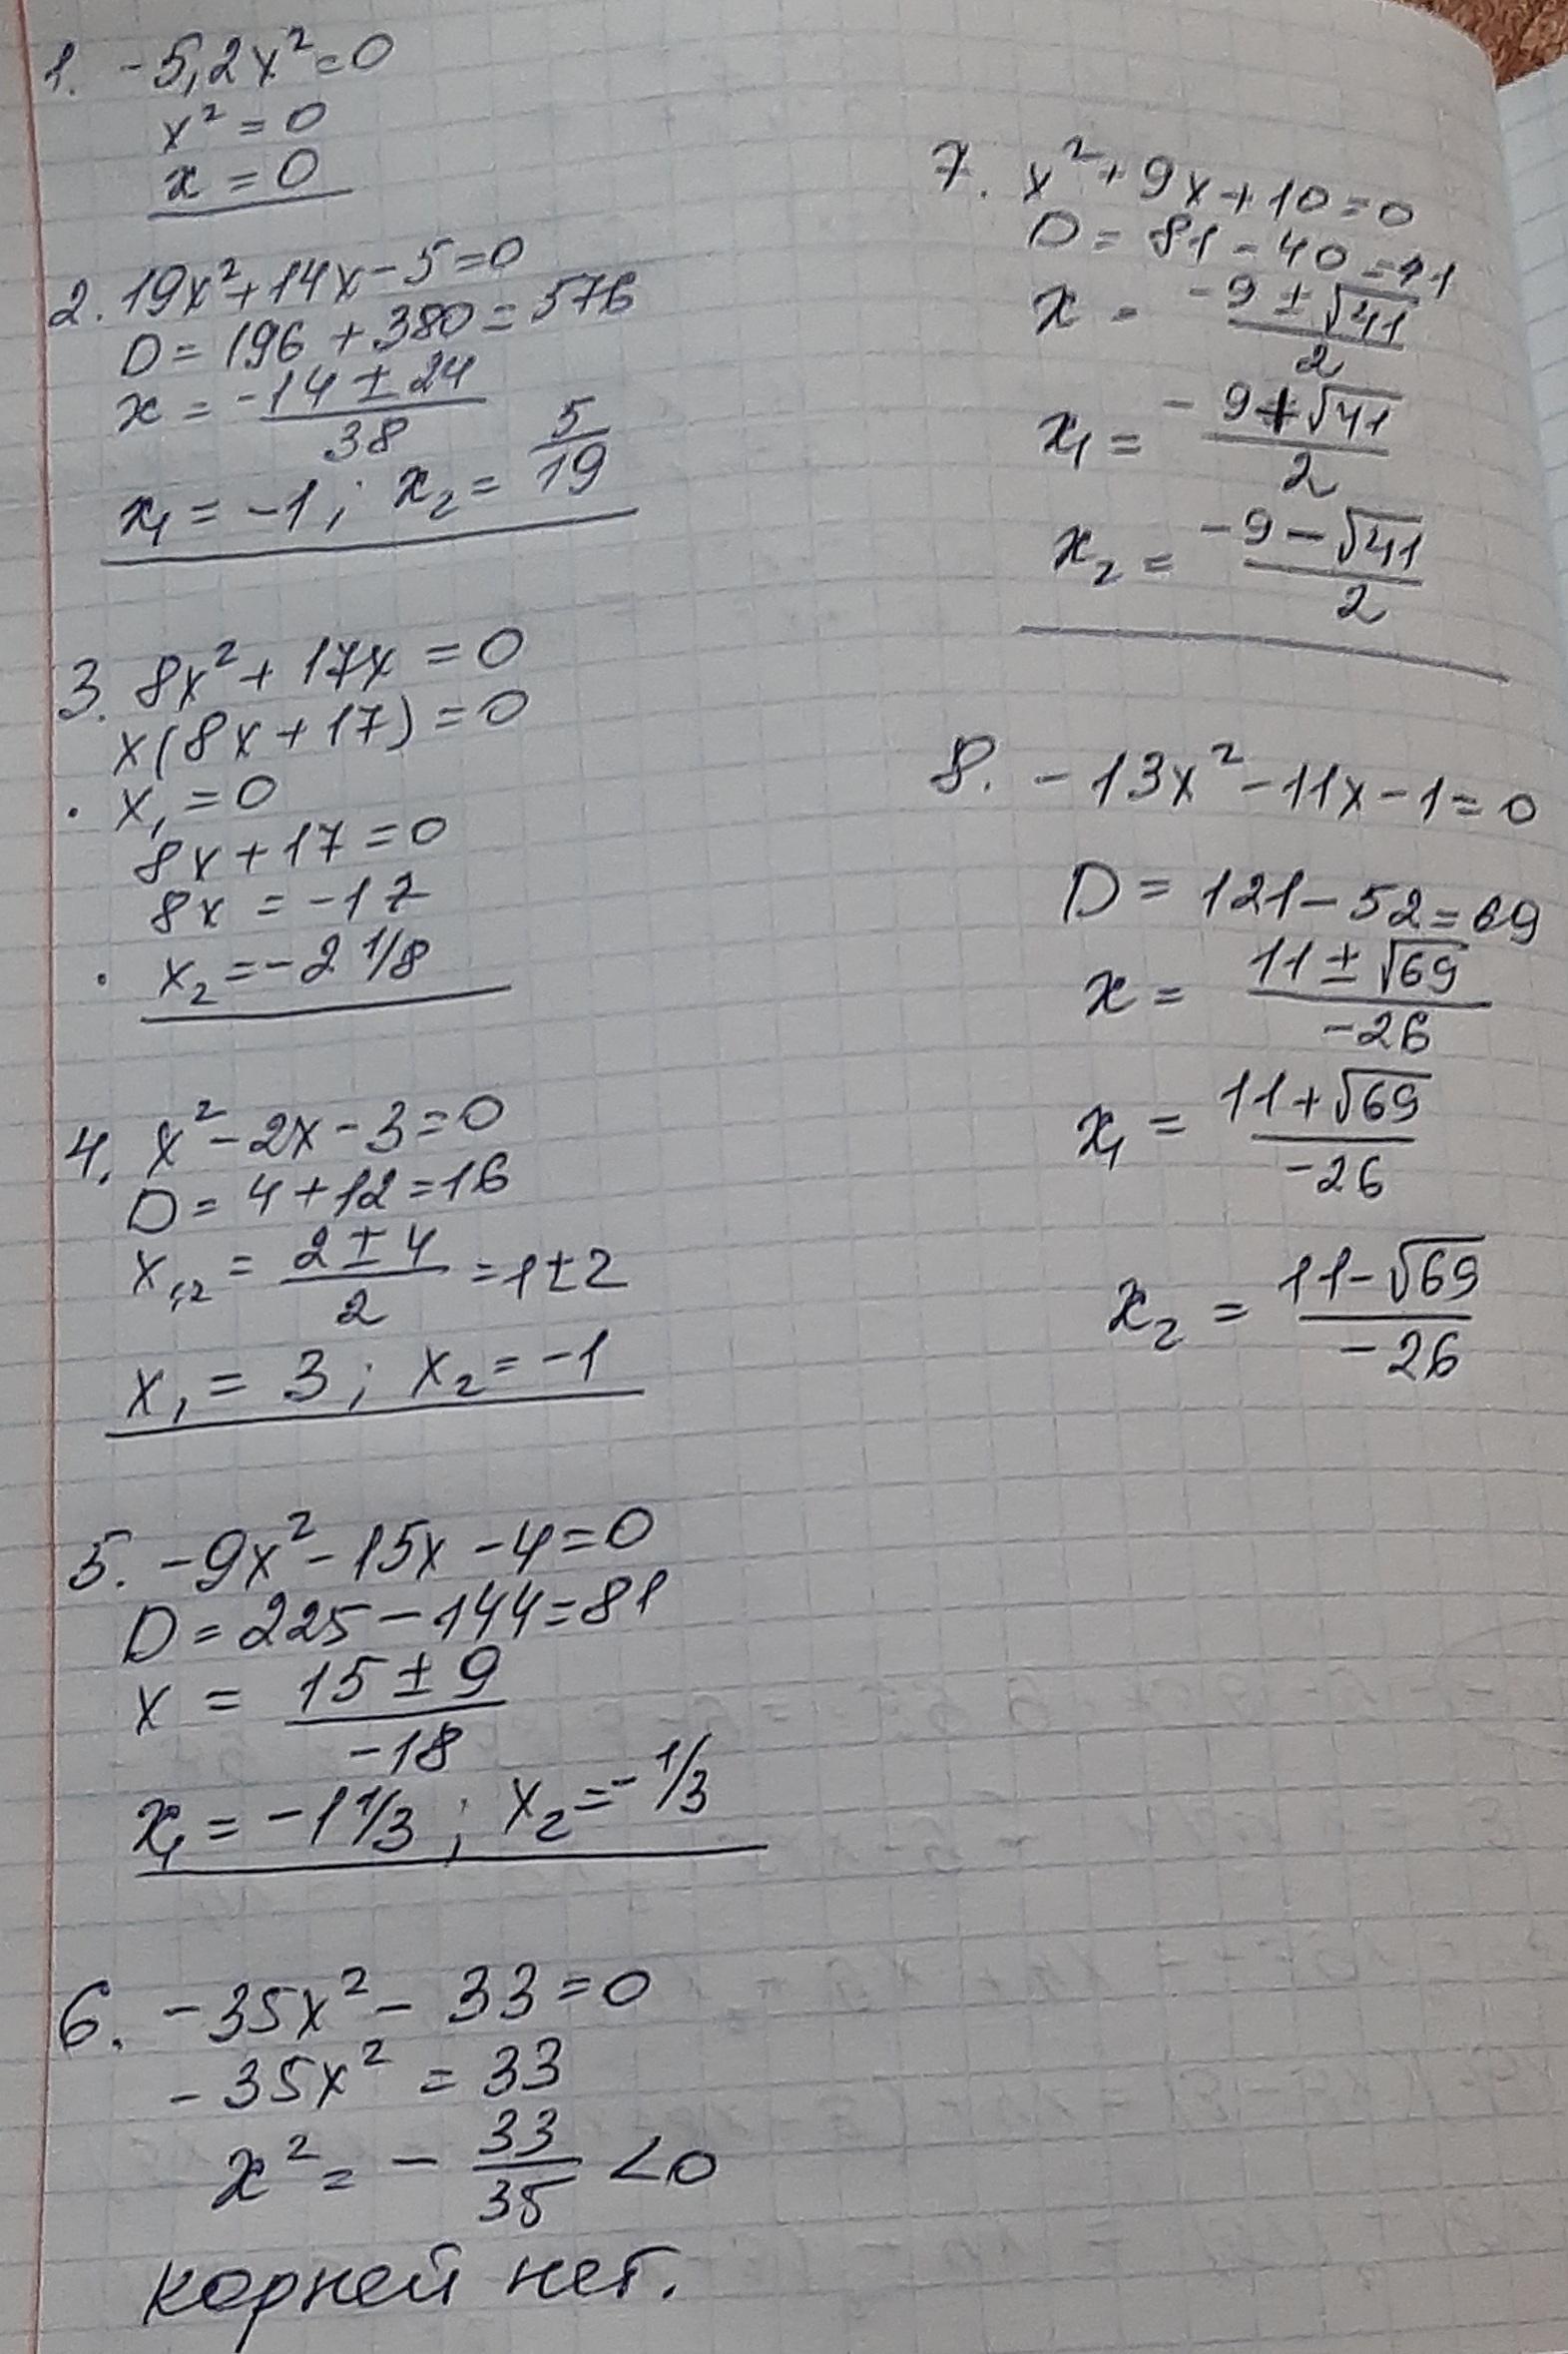 1. -5,2x² = 0
x² = 0
x = 0
2. 19x² + 14x - 5 = 0
D = 196 + 380 = 576
x = (-14 ± 24)/38
x₁ = -1; x₂ = 5/19
3. 8x² + 17x = 0
x(8x + 17) = 0
· x₁ = 0
8x + 17 = 0
8x = -17
· x₂ = -2 1/8
4. x² - 2x - 3 = 0
D = 4 + 12 = 16
x₁,₂ = (2 ± 4)/2 = 1 ± 2
x₁ = 3; x₂ = -1
5. -9x² - 15x - 4 = 0
D = 225 - 144 = 81
x = (15 ± 9)/-18
x₁ = -1 1/3; x₂ = -1/3
6. -35x² - 33 = 0
-35x² = 33
x² = -33/35 < 0
корней нет.
7. x² + 9x + 10 = 0
D = 81 - 40 = 41
x = (-9 ± √41)/2
x₁ = (-9 + √41)/2
x₂ = (-9 - √41)/2
8. -13x² - 11x - 1 = 0
D = 121 - 52 = 69
x = (11 ± √69)/-26
x₁ = (11 + √69)/-26
x₂ = (11 - √69)/-26